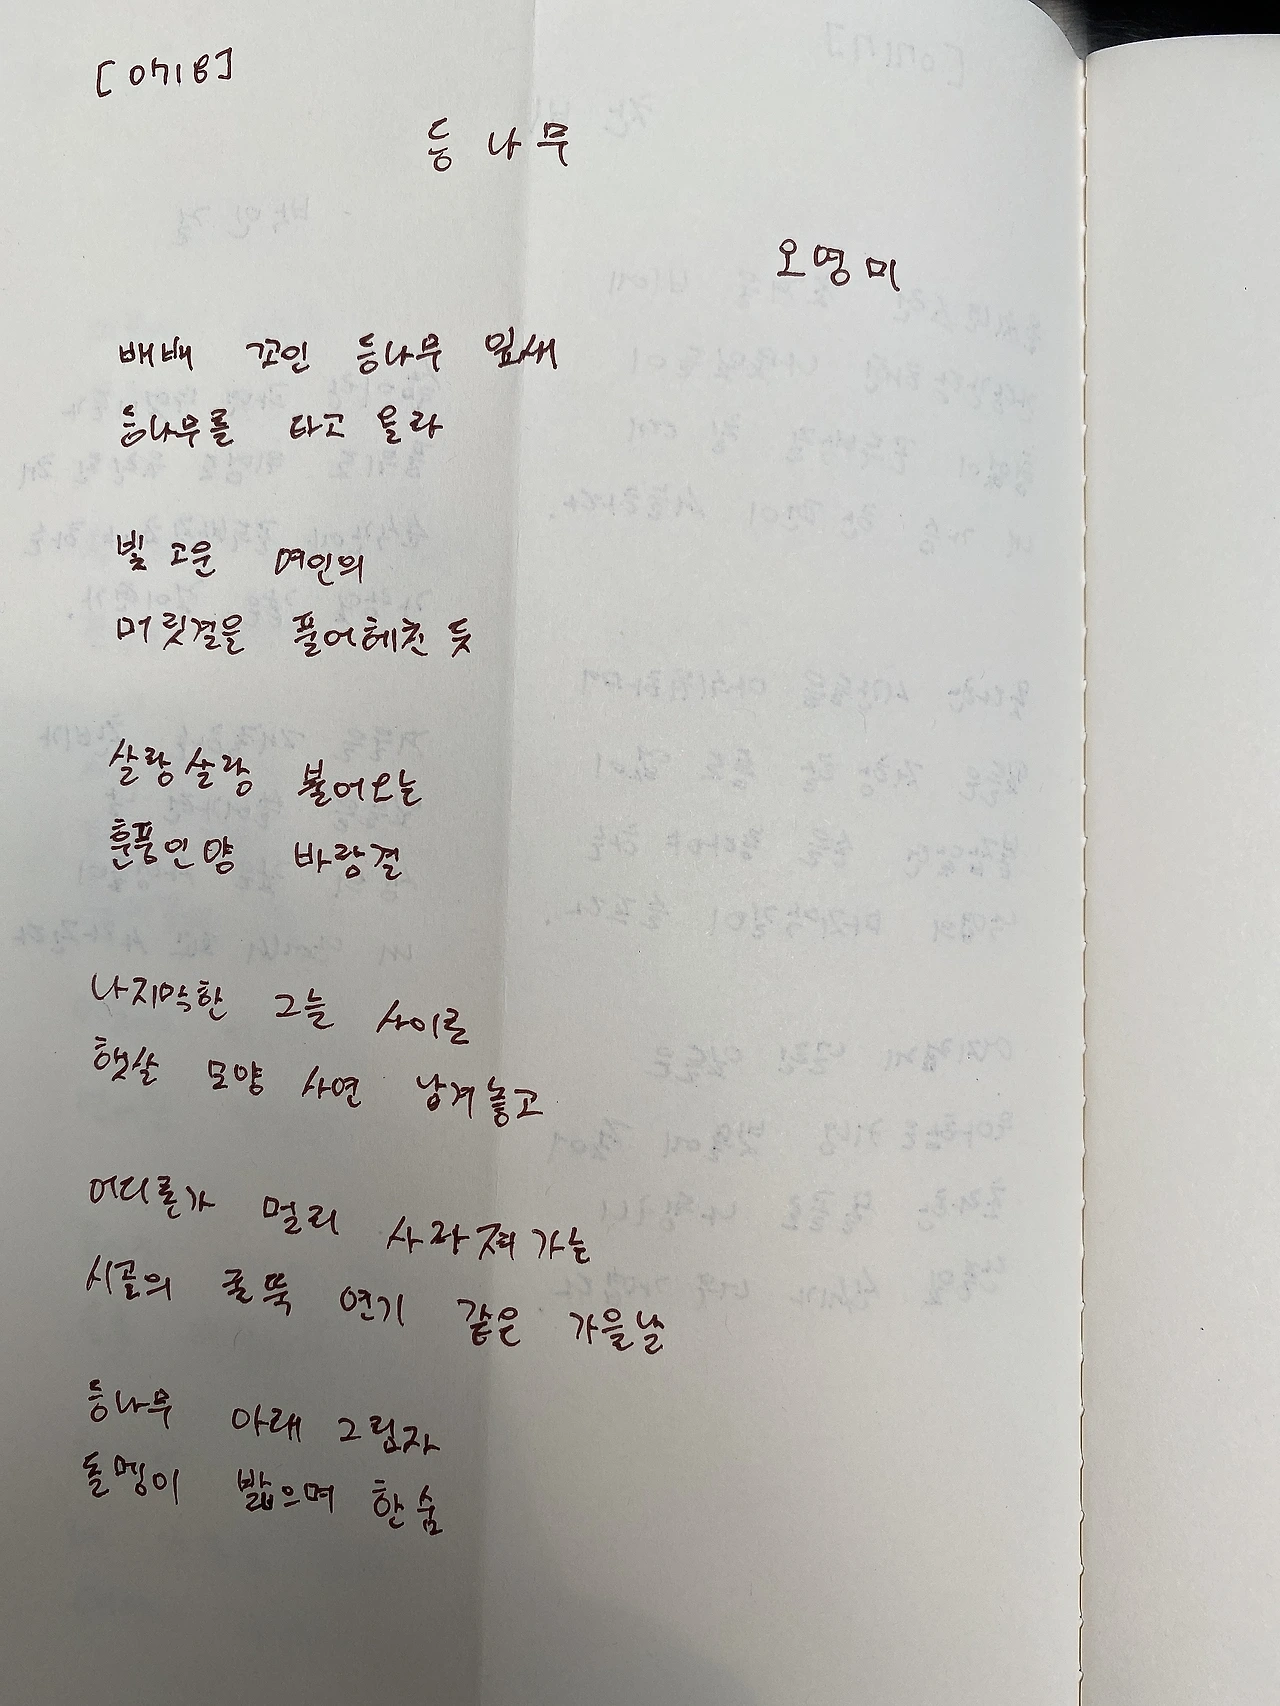 [0718]
등나무
오영미
배배 꼬인 등나무 잎새
등나무를 타고 올라
빛 고운 여인의
머릿결을 풀어헤친 듯
살랑살랑 불어오는
훈풍인양 바람결
나지막한 그늘 사이로
햇살 모양 사연 남겨놓고
어디론가 멀리 사라져가는
시골의 굴뚝 연기 같은 가을날
등나무 아래 그림자
돌멩이 밟으며 한숨